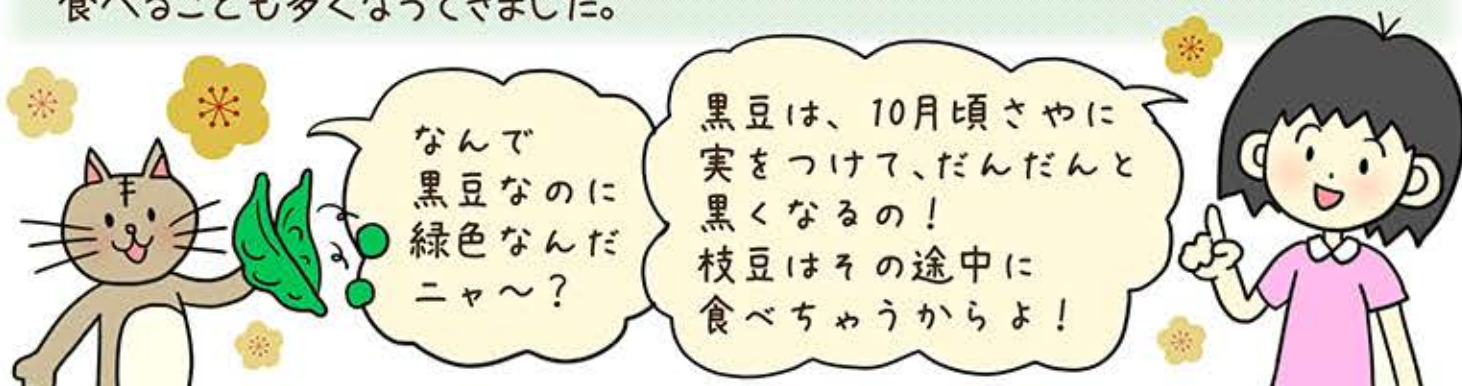 食べることも多くなってきました。
なんで
黒豆なのに
緑色なんだ
ニャ～？
黒豆は、10月頃さやに
実をつけて、だんだんと
黒くなるの！
枝豆はその途中に
食べちゃうからよ！